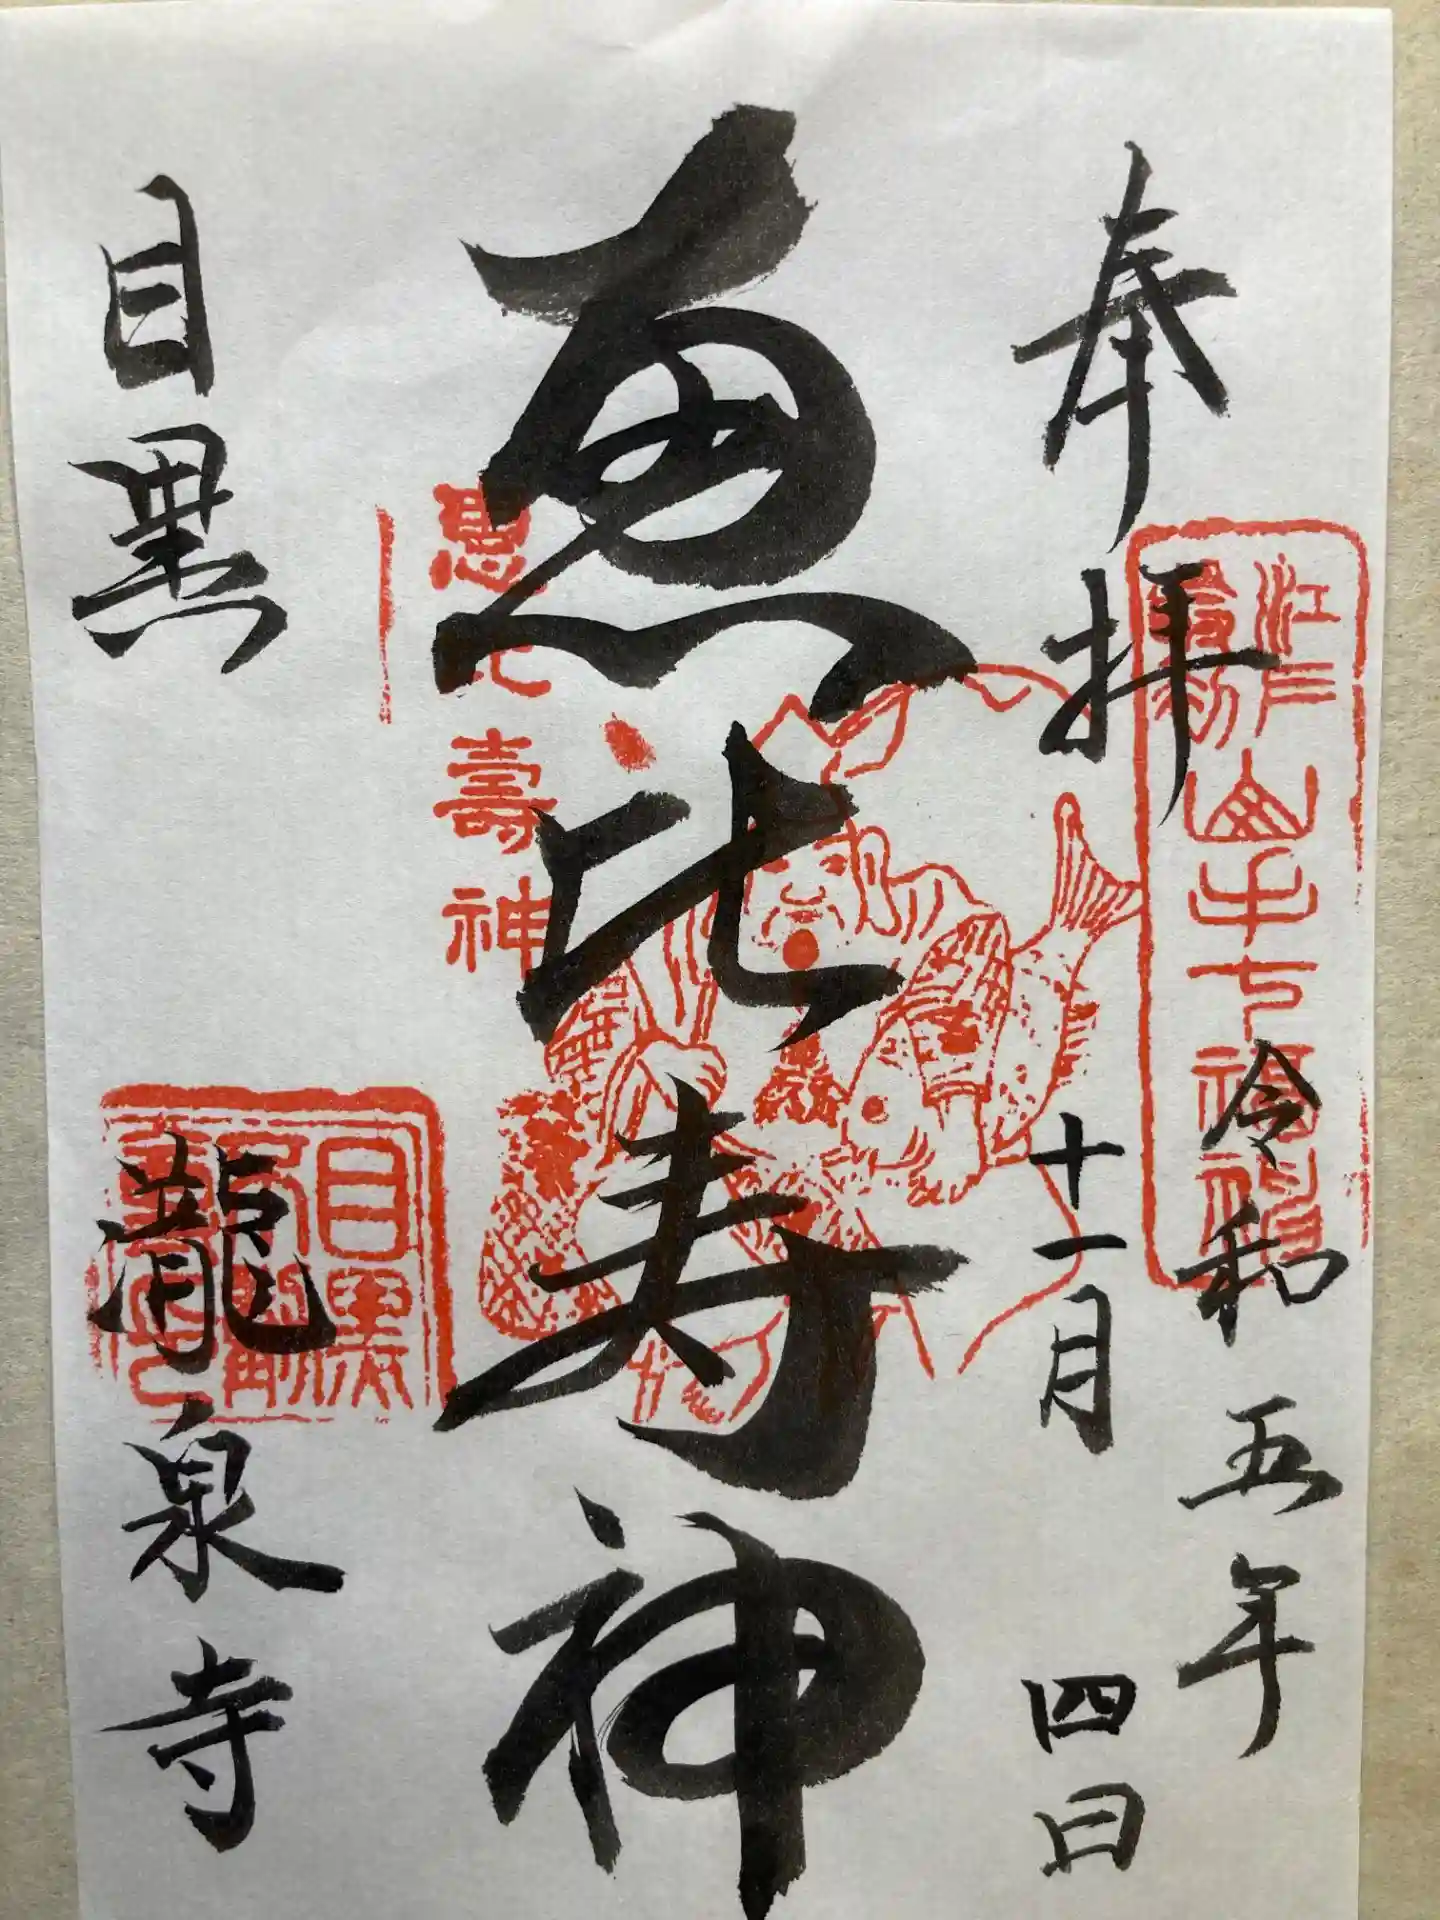 奉拝
令和五年
十一月四日
恵比寿神
目黒
瀧泉寺
恵比壽神
江戸最初
山手七福神
目黒